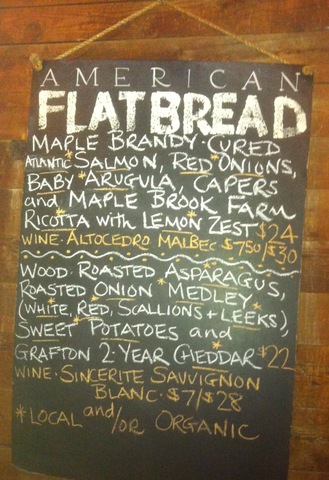 AMERICAN
FLATBREAD
MAPLE BRANDY·CURED
ATLANTIC *SALMON, RED *ONIONS,
BABY *ARUGULA, CAPERS
and MAPLE BROOK FARM
RICOTTA with LEMON ZEST $24
WINE·ALTOCEDRO MALBEC $7.50/$30
WOOD·ROASTED ASPARAGUS,
ROASTED ONION *MEDLEY
(WHITE, RED, SCALLIONS + LEEKS),
SWEET *POTATOES and
GRAFTON 2·YEAR CHEDDAR $22
WINE·SINCERITE SAUVIGNON
BLANC·$7/$28
*LOCAL and/or ORGANIC